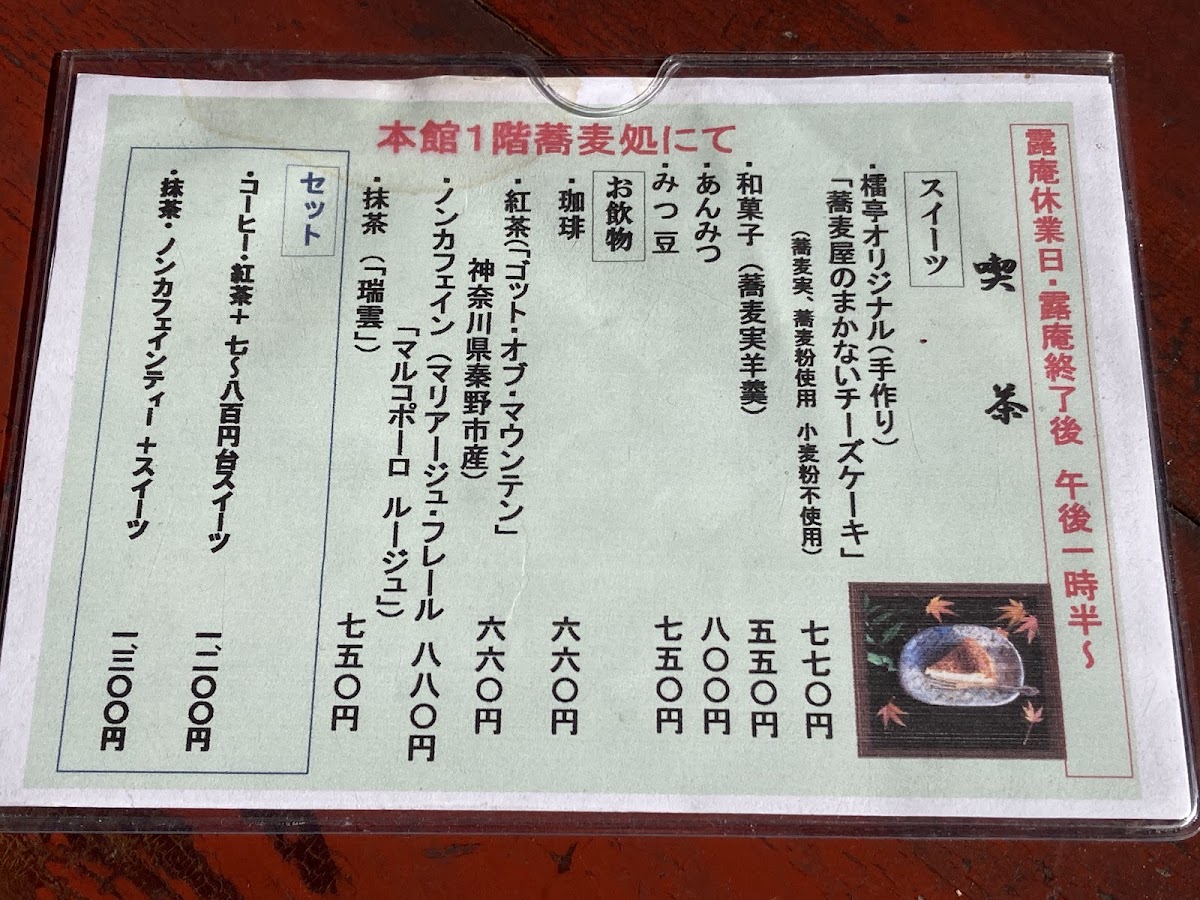 本館1階蕎麦処にて
露庵休業日・露庵終了後 午後一時半~
喫茶
スイーツ
・橲亭オリジナル(手作り)
「蕎麦屋のまかないチーズケーキ」
(蕎麦実、蕎麦粉使用 小麦粉不使用) 七七〇円
・和菓子(蕎麦実羊羹) 五五〇円
・あんみつ 八〇〇円
・みつ豆 七五〇円
お飲物
・珈琲 六六〇円
・紅茶(「ゴット・オブ・マウンテン」
神奈川県秦野市産) 六六〇円
・ノンカフェイン(マリアージュ・フレール 八八〇円
「マルコポーロ ルージュ」)
・抹茶(「瑞雲」) 七五〇円
セット
・コーヒー・紅茶+七~八百円台スイーツ 一、二〇〇円
・抹茶・ノンカフェインティー+スイーツ 一、三〇〇円